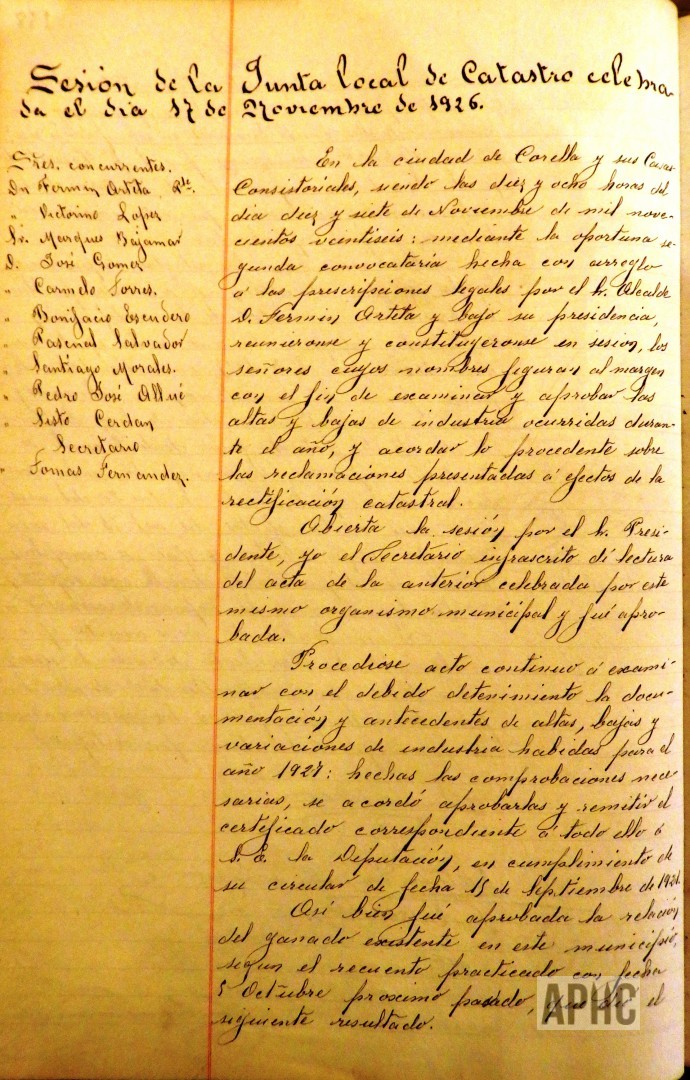 Sesión de la Junta local de Catastro celebra-
da el dia 17 de Noviembre de 1926.
Sres. concurrentes.
Dn Fermin Arteta Pte.
" Victorino Lopez
Sr. Marques Bajamar
D. José Gomez
" Carmelo Torres.
" Bonifacio Escudero
" Pascual Salvador
" Santiago Morales.
" Pedro José Allué
" Sisto Cerdan
Secretario
" Tomas Fernandez.
En la ciudad de Corella y sus Casas
Consistoriales, siendo las diez y ocho horas del
dia diez y siete de Noviembre de mil nove-
cientos veintiseis: mediante la oportuna se-
gunda convocataria hecha con arreglo
á las prescripciones legales por el Sr. Alcalde
D. Fermin Arteta y bajo su presidencia,
reunieronse y constituyeronse en sesión, los
señores cuyos nombres figuran al margen
con el fin de examinar y aprobar las
altas y bajas de industria ocurridas duran-
te el año, y acordar lo procedente sobre
las reclamaciones presentadas á efectos de la
rectificación catastral.
Abierta la sesión por el Sr. Presi-
dente, yo el Secretario infrascrito dí lectura
del acta de la anterior celebrada por este
mismo organismo municipal y fué apro-
bada.
Procediose acto continuo á exami-
nar con el debido detenimiento la docu-
mentación y antecedentes de altas, bajas y
variaciones de industria habidas para el
año 1927: hechas las comprobaciones nece-
sarias, se acordó aprobarlas y remitir el
certificado correspondiente á todo ello á
S. E. la Diputación, en cumplimiento de
su circular de fecha 15 de Septiembre de 1926.
Asi bien fué aprobada la relación
del ganado existente en este municipio,
segun el recuento practicado con fecha
5 Octubre proximo pasado, que dió el
siguiente resultado.
APHC